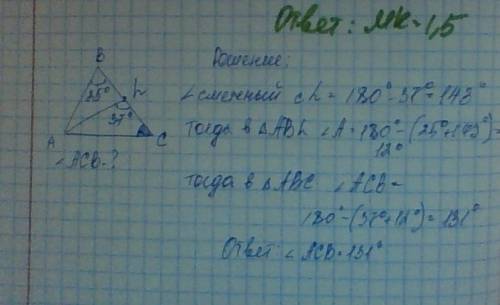 Ответ: МК=1,5
Решение:
B
25°
L
37°
A
C
∠ACB-?
∠смежный с L = 180°-37°=143°
Тогда в △ABL ∠A=180°-(25°+143°)=
12°
Тогда в △ABC ∠ACB=
180°-(37°+12°)=131°
Ответ: ∠ACB=131°